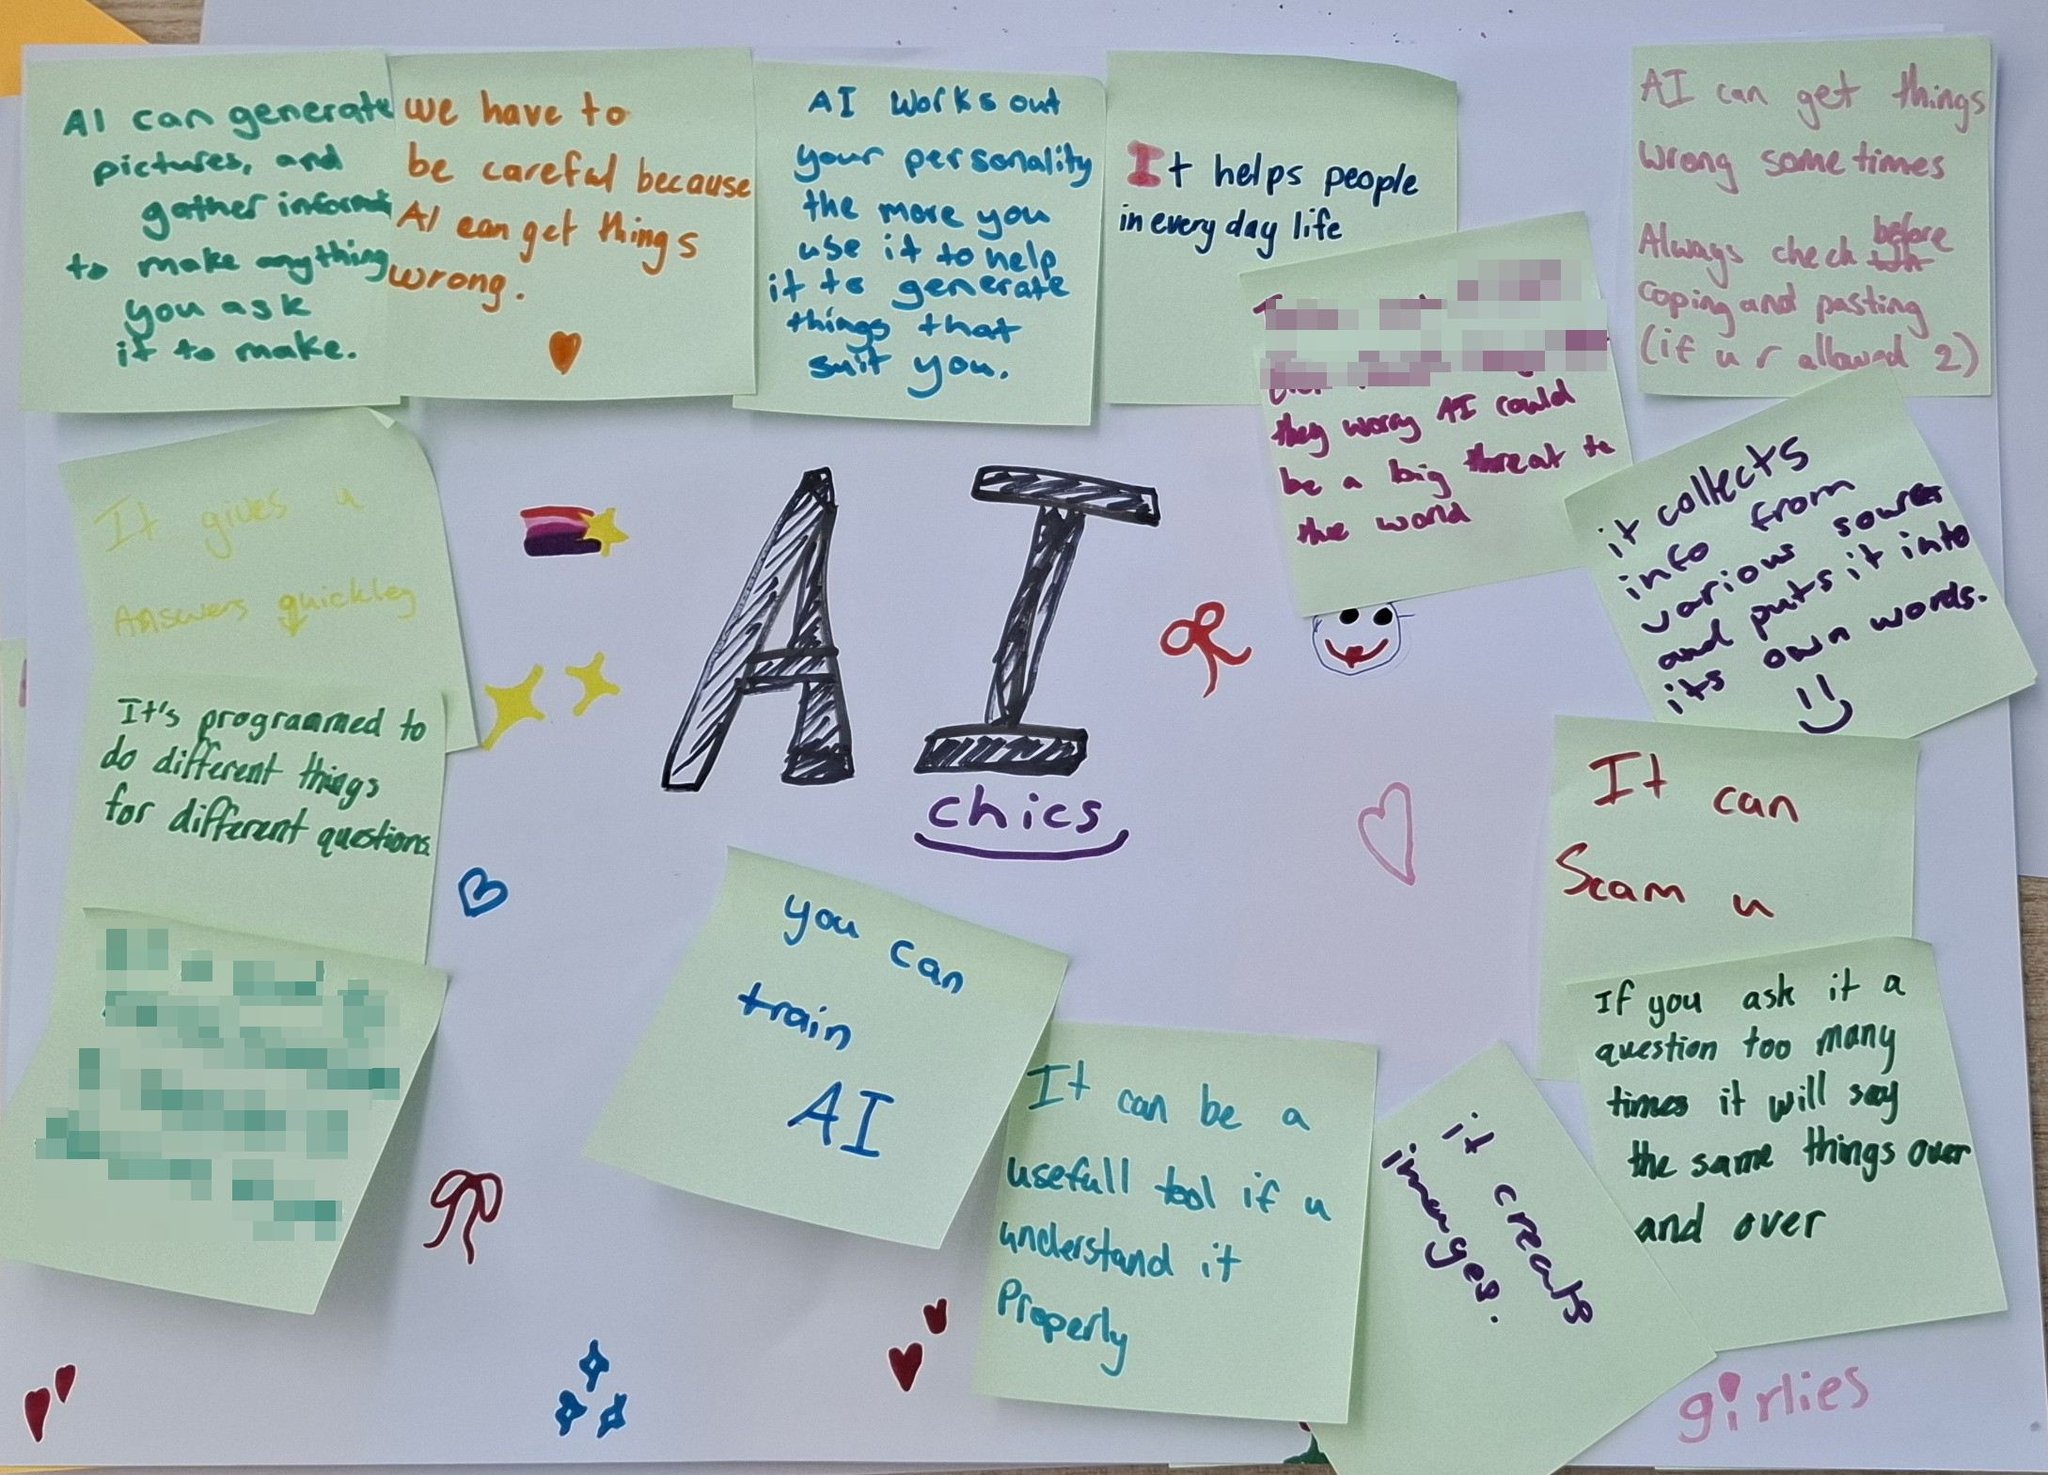 AI can generate
pictures, and
gather
to make anything
you ask
it to make.
we have to
be careful because
AI can get things
wrong.
AI works out
your personality
the more you
use it to help
it to generate
things that
suit you.
It helps people
in every day life
AI can get things
wrong some times
Always check before
coping and pasting
(if u r allowed 2)
they worry AI could
be a big threat to
the world
it collects
info from
various
and puts it into
its own words.
It gives u
Answers quickley
It's programmed to
do different things
for different questions.
AI
chics
It can
Scam u
you can
train
AI
If you ask it a
question too many
times it will say
the same things over
and over
It can be a
usefull tool if u
understand it
Properly
it creats
images.
girlies